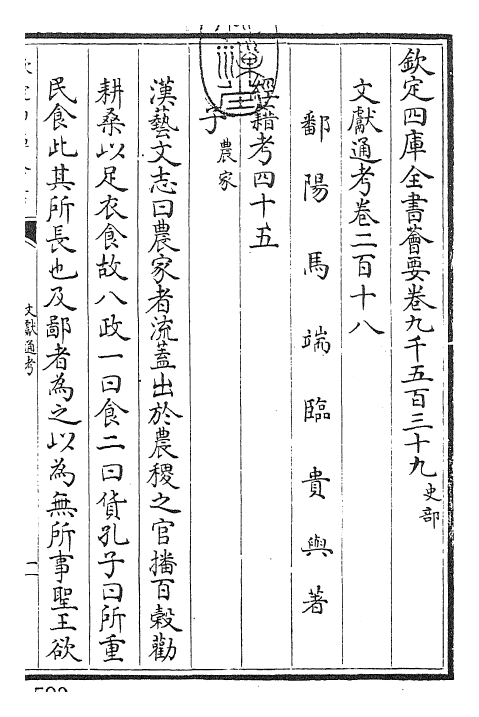 欽定四庫全書薈要卷九千五百三十九 史部
文獻通考卷二百十八
鄱陽馬端臨貴與著
經籍考四十五
子 農家
漢藝文志曰農家者流蓋出於農稷之官播百穀勸
耕桑以足衣食故八政一曰食二曰貨孔子曰所重
民食此其所長也及鄙者為之以為無所事聖王欲
文獻通考